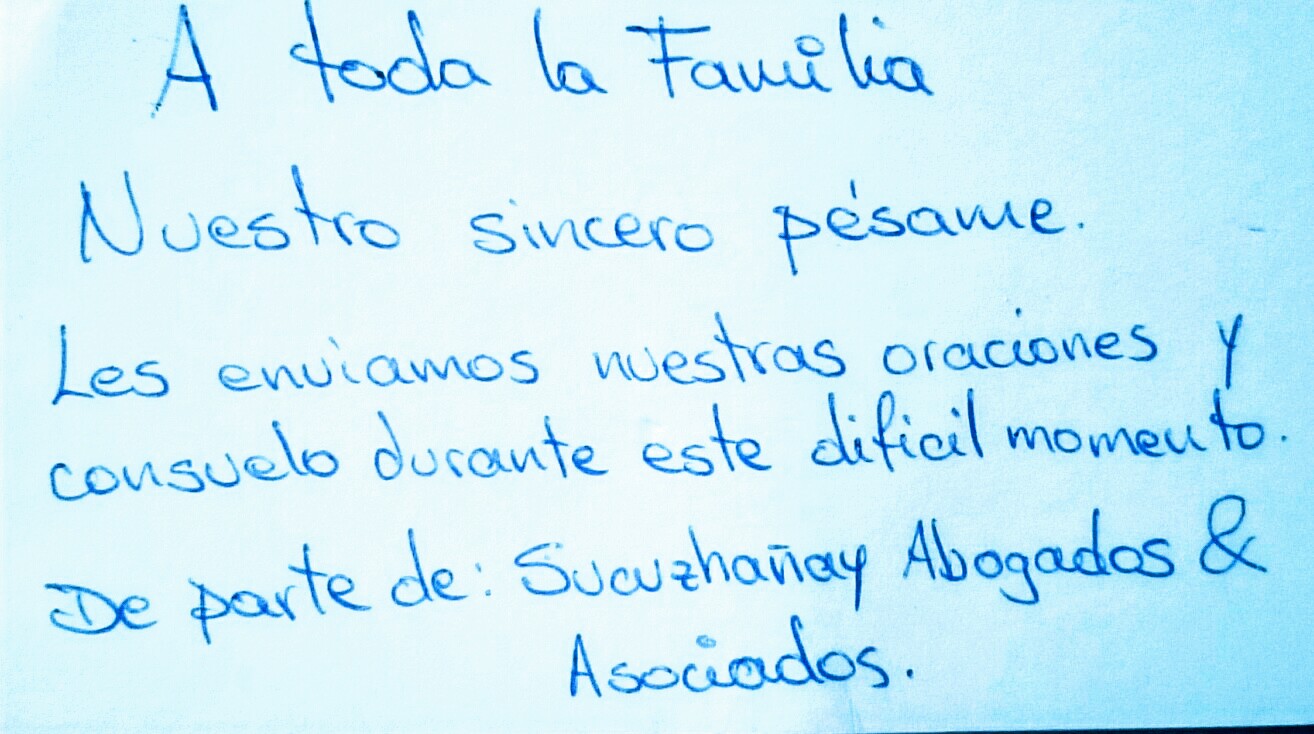 A toda la Familia
Nuestro sincero pésame.
Les enviamos nuestras oraciones y
consuelo durante este dificil momento.
De parte de: Sucuzhañay Abogados &
Asociados.